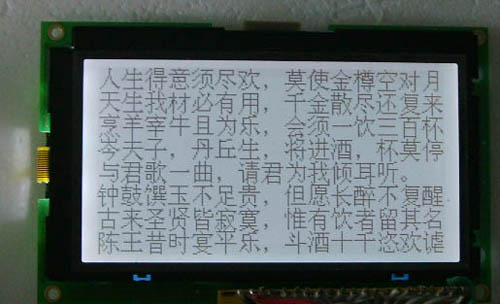 人生得意须尽欢，莫使金樽空对月
天生我材必有用，千金散尽还复来
烹羊宰牛且为乐，会须一饮三百杯
岑夫子，丹丘生，将进酒，杯莫停
与君歌一曲，请君为我倾耳听。
钟鼓馔玉不足贵，但愿长醉不复醒
古来圣贤皆寂寞，惟有饮者留其名
陈王昔时宴平乐，斗酒十千恣欢谑